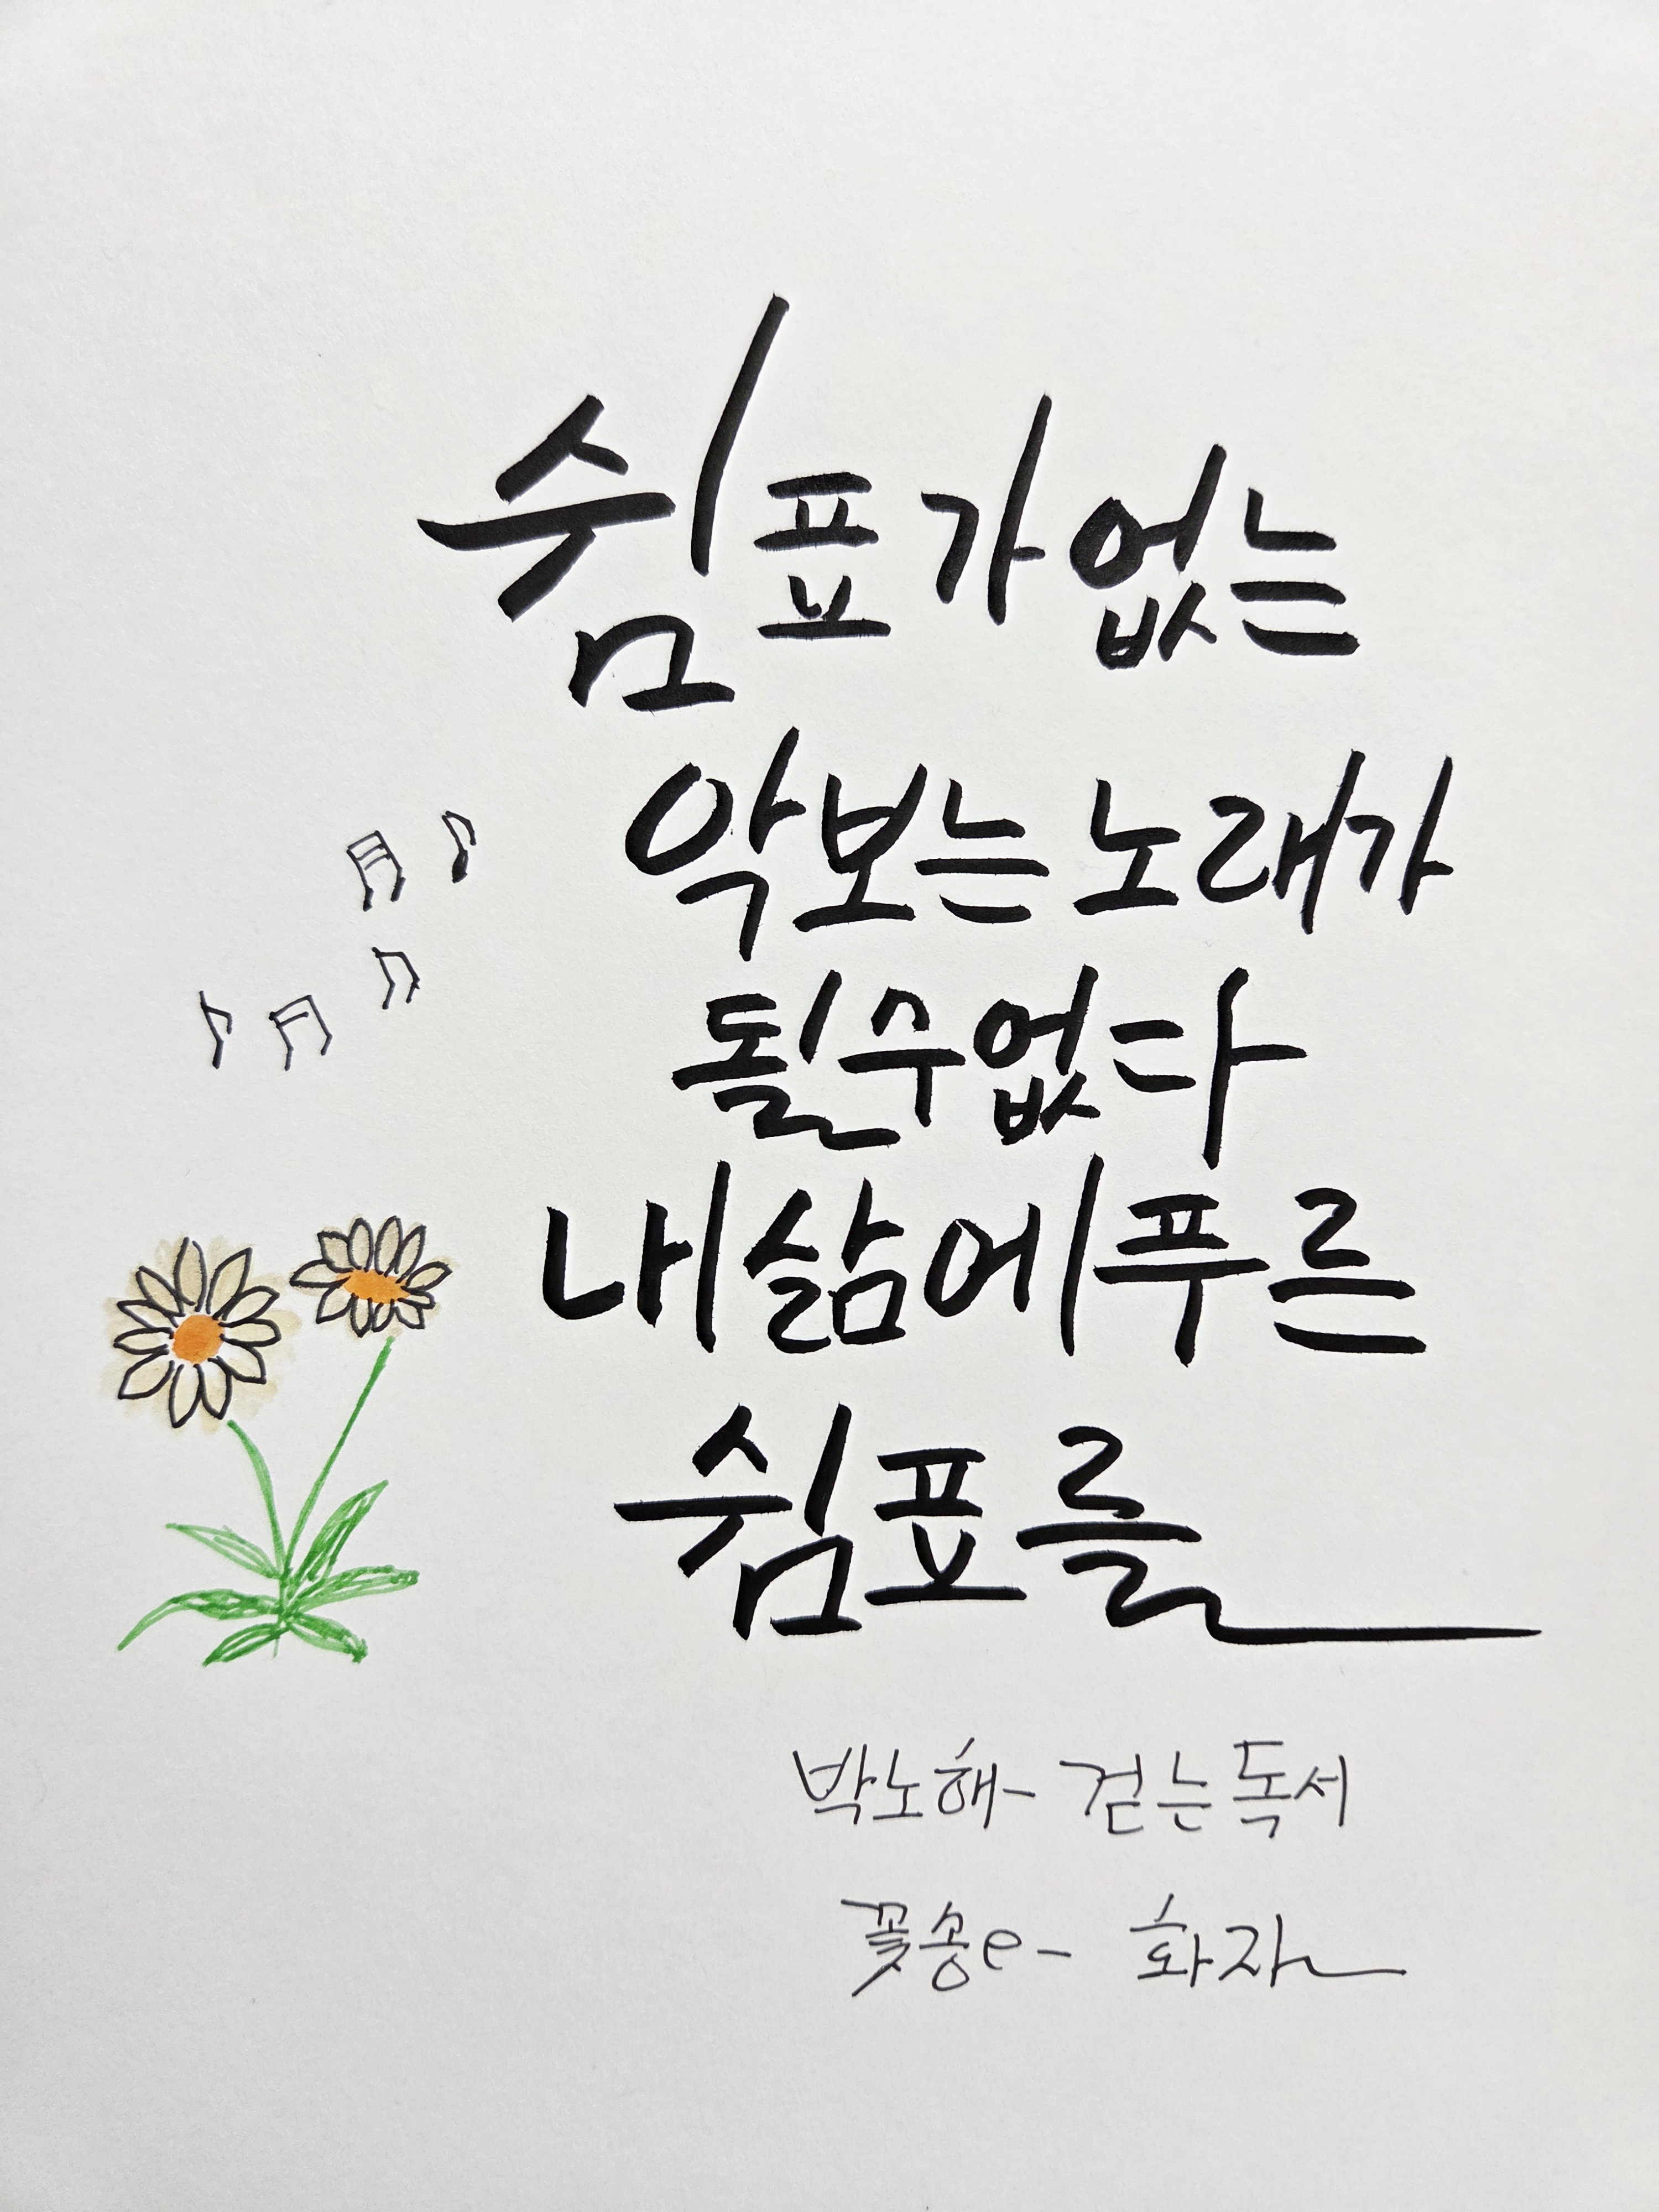 쉼표가 없는
악보는 노래가
될 수 없다
내 삶에 푸른
쉼표를
박노해- 걷는 독서
꽃송e- 화자